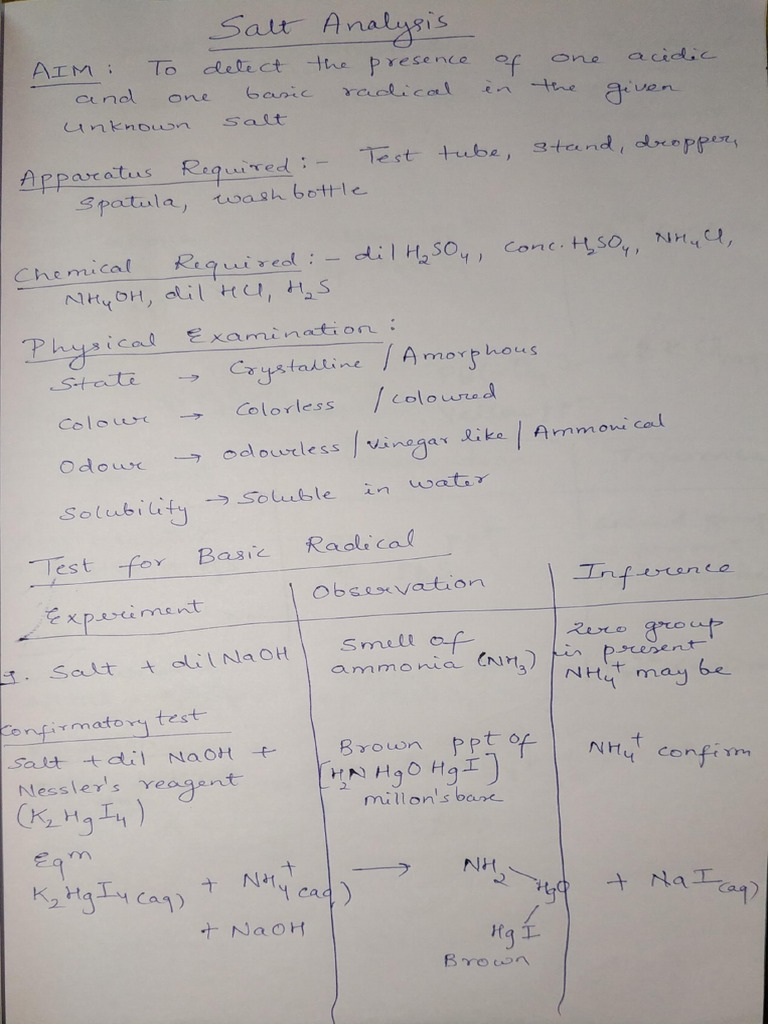 Salt Analysis
AIM : To detect the presence of one acidic
and one basic radical in the given
unknown salt
Apparatus Required :- Test tube, stand, dropper,
spatula, wash bottle
Chemical Required :- dil H₂SO₄, conc. H₂SO₄, NH₄Cl,
NH₄OH, dil HCl, H₂S
Physical Examination :
State → Crystalline / Amorphous
Colour → Colorless / coloured
Odour → odourless / vinegar like / Ammonical
Solubility → Soluble in water
Test for Basic Radical
Experiment
Observation
Inference
1. Salt + dil NaOH
Smell of
ammonia (NH₃)
Zero group
is present
NH₄⁺ may be
Confirmatory test
Salt + dil NaOH +
Nessler's reagent
(K₂HgI₄)
Brown ppt of
[H₂N HgO HgI]
millon's base
NH₄⁺ confirm
Eqm
K₂HgI₄ (aq) + NH₄⁺ (aq) → NH₂ HgO + NaI (aq)
+ NaOH HgI
Brown